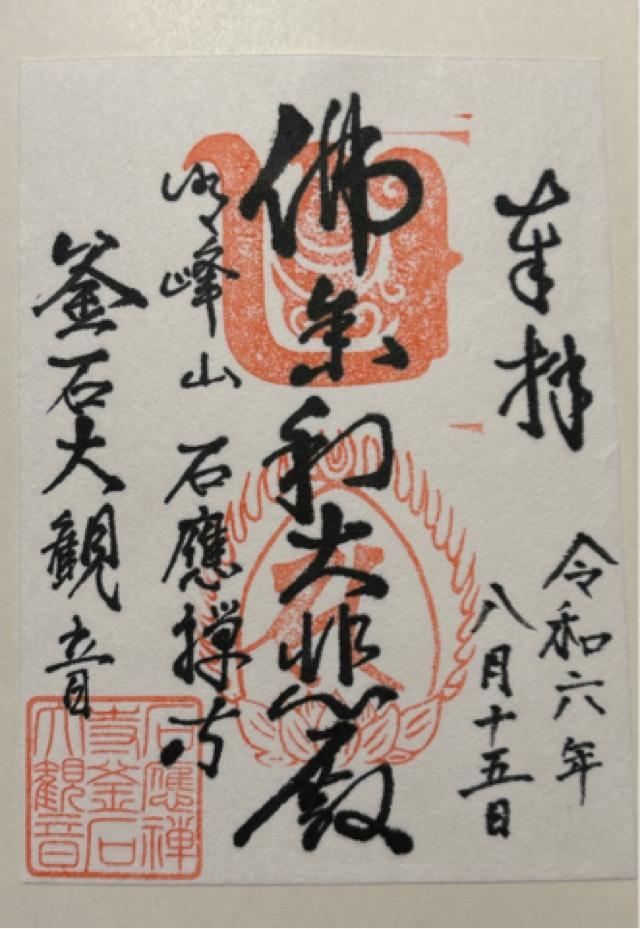 奉拝
令和六年
八月十五日
佛舎利大悲殿
明峰山 石應禅寺
釜石大観音
石應禅
寺釜石
大観音